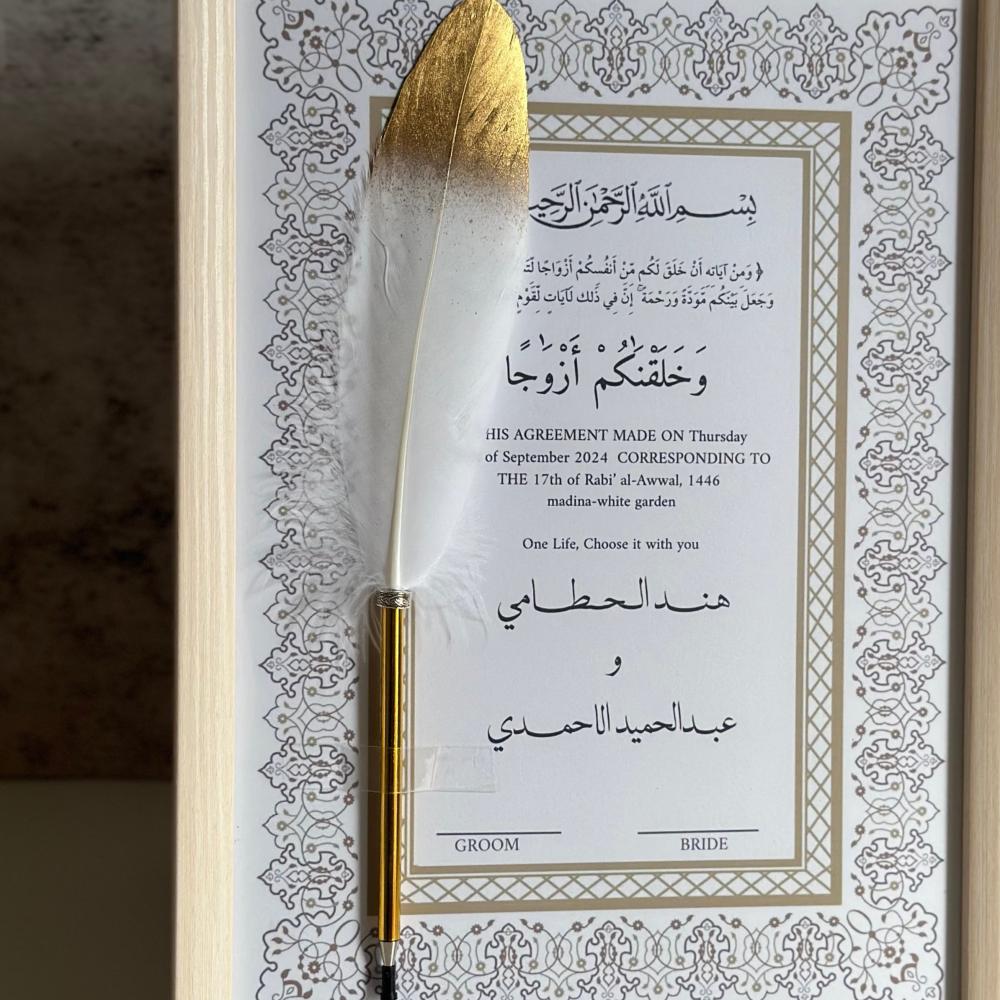 بِسْمِ اللَّهِ الرَّحْمَٰنِ
﴿ وَمِنْ آيَاتِهِ أَنْ خَلَقَ لَكُم مِّنْ أَنفُسِكُمْ أَزْوَاجًا
وَجَعَلَ بَيْنَكُم مَّوَدَّةً وَرَحْمَةً ۚ إِنَّ فِي ذَٰلِكَ لَآيَاتٍ لِّقَوْمٍ
وَخَلَقْنَٰكُمْ أَزْوَٰجًا
HIS AGREEMENT MADE ON Thursday
of September 2024 CORRESPONDING TO
THE 17th of Rabi’ al-Awwal, 1446
madina-white garden
One Life, Choose it with you
هنـد الـحـطـامي
و
عبدالحميد الاحمدي
GROOM BRIDE